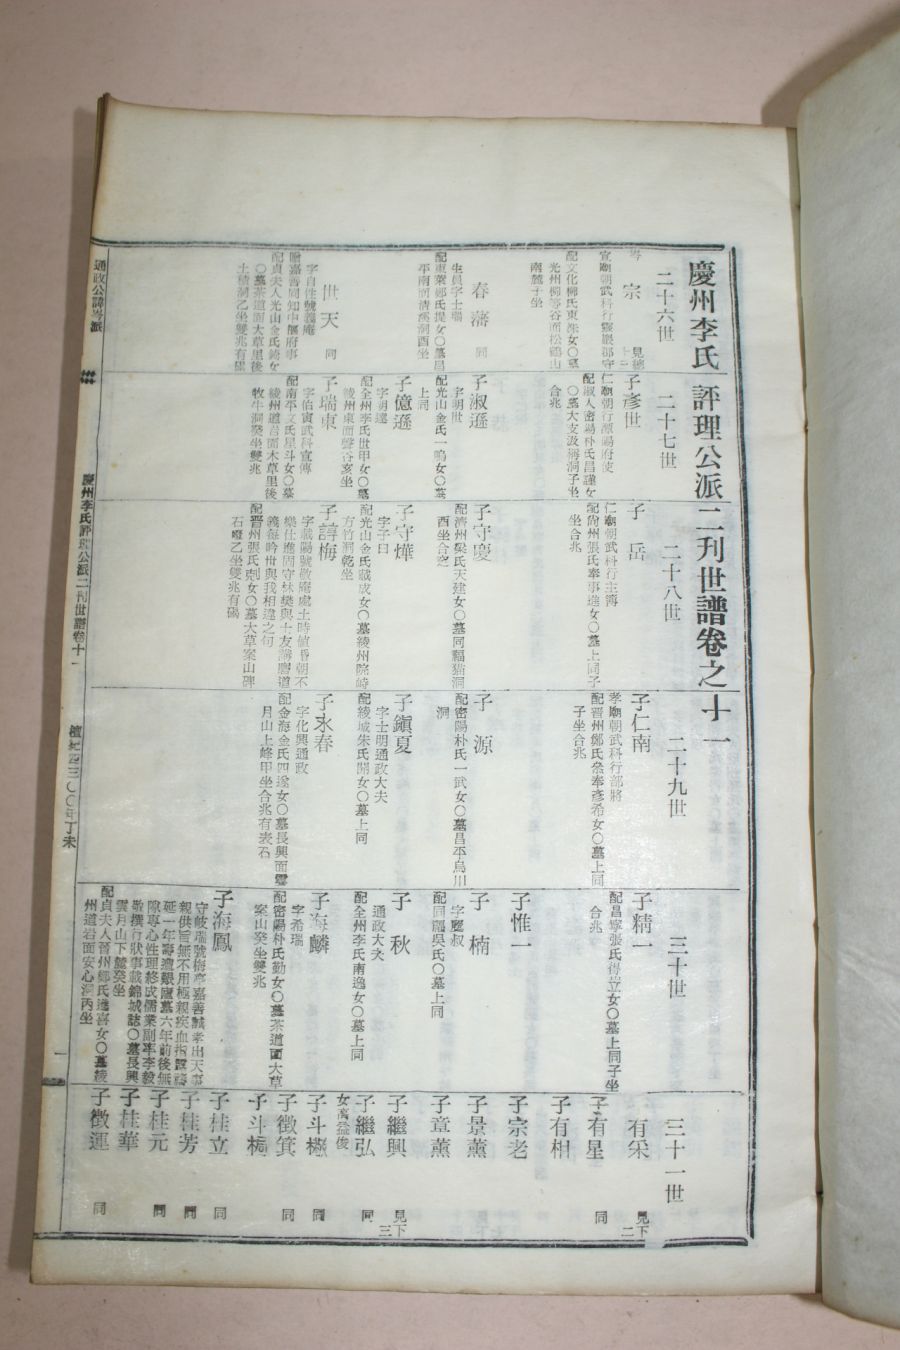 慶州李氏評理公派二刊世譜卷之十一
二十六世
宗
見總
宣廟朝武科行靈巖郡守
配文化柳氏東洙女○墓
光州柳等谷面松鶴山
南麓子坐
春蕃 同
生員字士瑞
平南面清溪洞酉坐
世天 同
字自性號義庵
贍嘉善同知中樞府事
配貞夫人光山金氏錡女
○墓茶道面大草里後
土積洞乙坐雙兆有碣
二十七世
子彥世
仁廟朝行潭陽府使
配淑人密陽朴氏昌謹女
○墓大支汲稱洞子坐
合兆
子淑遜
字明世
配光山金氏一鳴女○墓
上同
子億遜
字明遠
配全州李氏世甲女○墓
綾州東面聲谷亥坐
子瑞東
字伯寅武科宣傳
配南平文氏星斗女○墓
綾州道岩面木草里後
牧牛洞癸坐雙兆
二十八世
子岳
仁廟朝武科行主簿
配尙州張氏奉事進女○墓上同子
坐合兆
子守慶
配濟州梁氏天建女○墓同福猫洞
酉坐合窆
子守燁
字子曰
配光山金氏戴成女○墓綾州院峙
方竹洞乾坐
子諄梅
字載陽號敬庵處士時値昏朝不
樂仕進固守林樊與士友講磨道
義每吟世與我相違之句
配晋州張氏剋女○墓大草案山碑
石嶝乙坐雙兆有碣
二十九世
子仁南
孝廟朝武科行部將
配晋州鄭氏叅奉彥希女○墓上同
子坐合兆
子源
配密陽朴氏一武女○墓昌平烏川
洞
子鎭夏
字士明通政大夫
配綾城朱氏開女○墓上同
子永春
字化興通政
配金海金氏四遂女○墓長興面雲
月山上峰甲坐合兆有表石
三十世
子精一
配昌寧張氏得岦女○墓上同子坐
合兆
子惟一
子楠
字慶叔
配同福吳氏○墓上同
子秋
通政大夫
配全州李氏南逸女○墓上同
子海麟
字希瑞
配密陽朴氏勤女○墓茶道面大草
案山癸坐雙兆
子海鳳
守岐瑞號梅亭嘉善誠孝出天事
親供旨無不用極親疾血指禱
延一年壽遭艱廬墓六年前後無
隙專心性理終成儒業副率李毅
敬撰行狀事載錦城誌○墓長興
雲月山下麓癸坐
配貞夫人晋州鄭氏進喜女○墓綾
州道岩面安心洞丙坐
三十一世
有采
見下二
子有星 同
子有相
子宗老
子景薰
子章薰
子繼興
見下三
子繼弘 同
女高益俊
子斗樾 同
子徵箕 同
子斗橋
子桂立 同
子桂芳 同
子桂元 同
子桂華
子徵運 同
通政公諱岑派
慶州李氏評理公派二刊世譜卷十一
檀紀四三〇〇年丁未
一